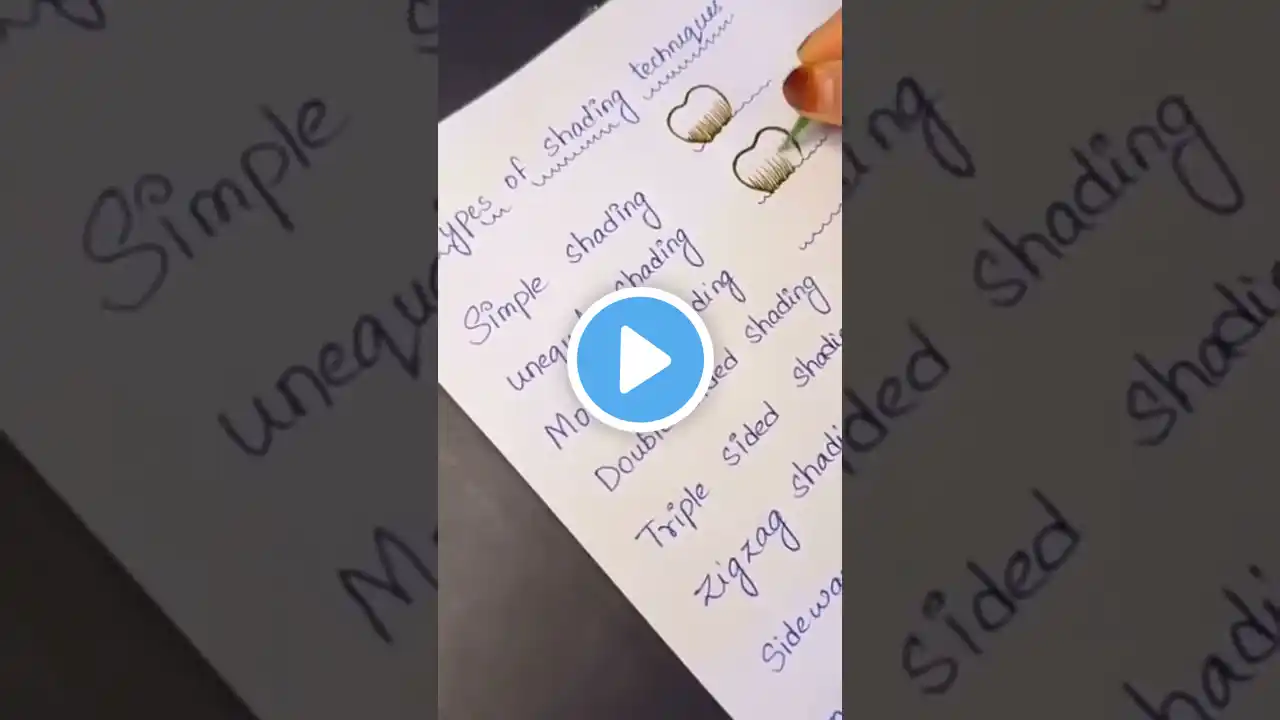 Types of shading techniques
Simple shading
unequal shading
Double sided shading
Triple sided shading
Zigzag shading